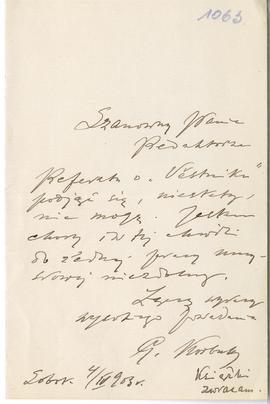 1063
Szanowny Panie
Redaktorze
Referatu o „Věstniku”
podjąć się, niestety,
nie mogę. Jestem
chory i w tej chwili
do żadnej pracy umy-
słowej niezdolny.
Łączę wyrazy
wysokiego poważania
G. Korbut
Sobot. 4/III 903 r.
Książki
zwracam.